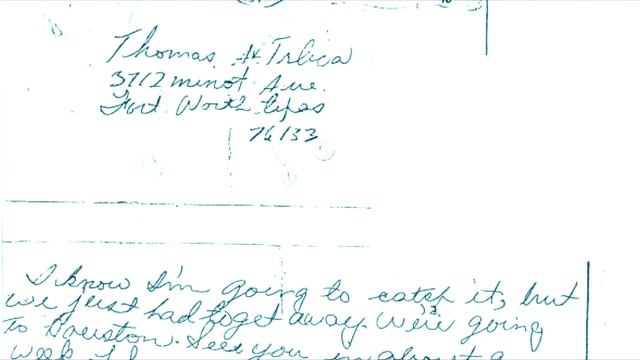 Thomas A. Trlica
3712 minot Ave.
Fort Worth Texas
76133
I know I'm going to catch it, but
we just had to get away. We're going
to Houston. See you in about a
week